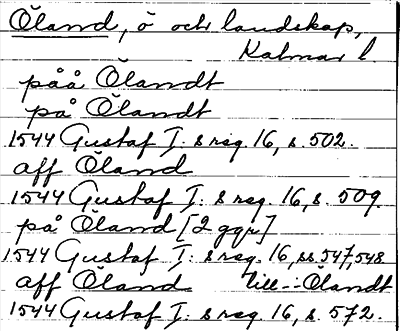 Öland, ö och landskap,
Kalmar l.
påå Ölandt
på Ölandt
1544 Gustaf I: s reg. 16, s. 502.
aff Öland
1544 Gustaf I: s reg. 16, s. 509.
på Öland [2 ggr]
1544 Gustaf I: s reg. 16, ss. 547, 548
aff Öland till -:- Ölandt
1544 Gustaf I: s reg. 16, s. 572.